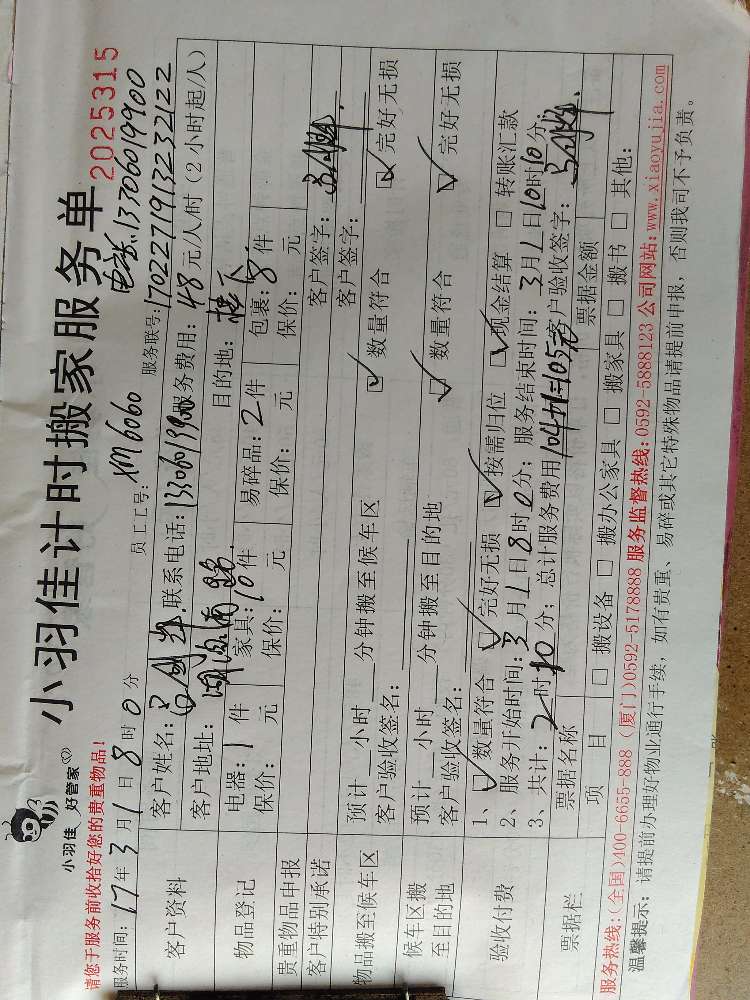 小羽佳 好管家
小羽佳计时搬家服务单 2025315
请您于服务前收拾好您的贵重物品! 电话:13306019900
服务时间: 17年3月1日8时0分 员工工号: XM6060 服务联号:
客户资料 客户姓名: 联系电话: 服务费用: 48元/人/时 (2小时起/人)
客户地址: 目的地: 楼下
物品登记 电器: 1件 家具: 10件 易碎品: 2件 包裹: 8件
保价: 元 保价: 元 保价: 元 保价: 元
贵重物品申报
客户特别承诺 客户签字:
物品搬至候车区 预计 小时 分钟搬至候车区 客户签字:
客户验收签名: ☑ 数量符合 ☑ 完好无损
候车区搬至目的地 预计 小时 分钟搬至目的地
客户验收签名: ☑ 数量符合 ☑ 完好无损
验收付费 1、☑ 数量符合 ☑ 完好无损 ☑ 按需归位 ☑ 现金结算 □ 转账汇款
2、服务开始时间: 3月1日8时0分; 服务结束时间: 3月1日10时10分
3、共计: 2时10分; 总计服务费用 客户验收签字:
票据栏 票据名称 票据金额
项目 □ 搬设备 □ 搬办公家具 □ 搬家具 □ 搬书 □ 其他:
服务热线:(全国)400-6655-888 (厦门)0592-5178888 服务监督热线:0592-5888123 公司网站:www.xiaoyujia.com
温馨提示: 请提前办理好物业通行手续, 如有贵重、易碎或其它特殊物品请提前申报, 否则我司不予负责。